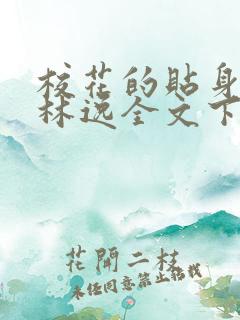 校花的贴身
林逸全文下
花開二枝
未经同意禁止搭载